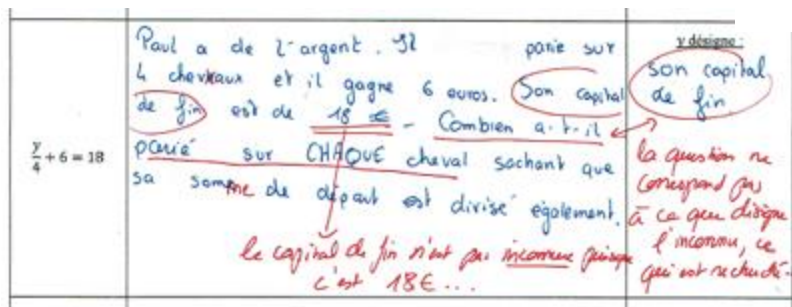 Paul a de l'argent. Il parie sur
4 chevaux et il gagne 6 euros. Son capital
de fin est de 18 €. Combien a-t-il
parié sur CHAQUE cheval sachant que
sa somme de départ est divisé également.
y/4 + 6 = 18
le capital de fin n'est pas inconnue puisque
c'est 18€...
y désigne :
son capital
de fin
la question ne
correspond pas
à ce que désigne
l'inconnu, ce
qui est recherché.